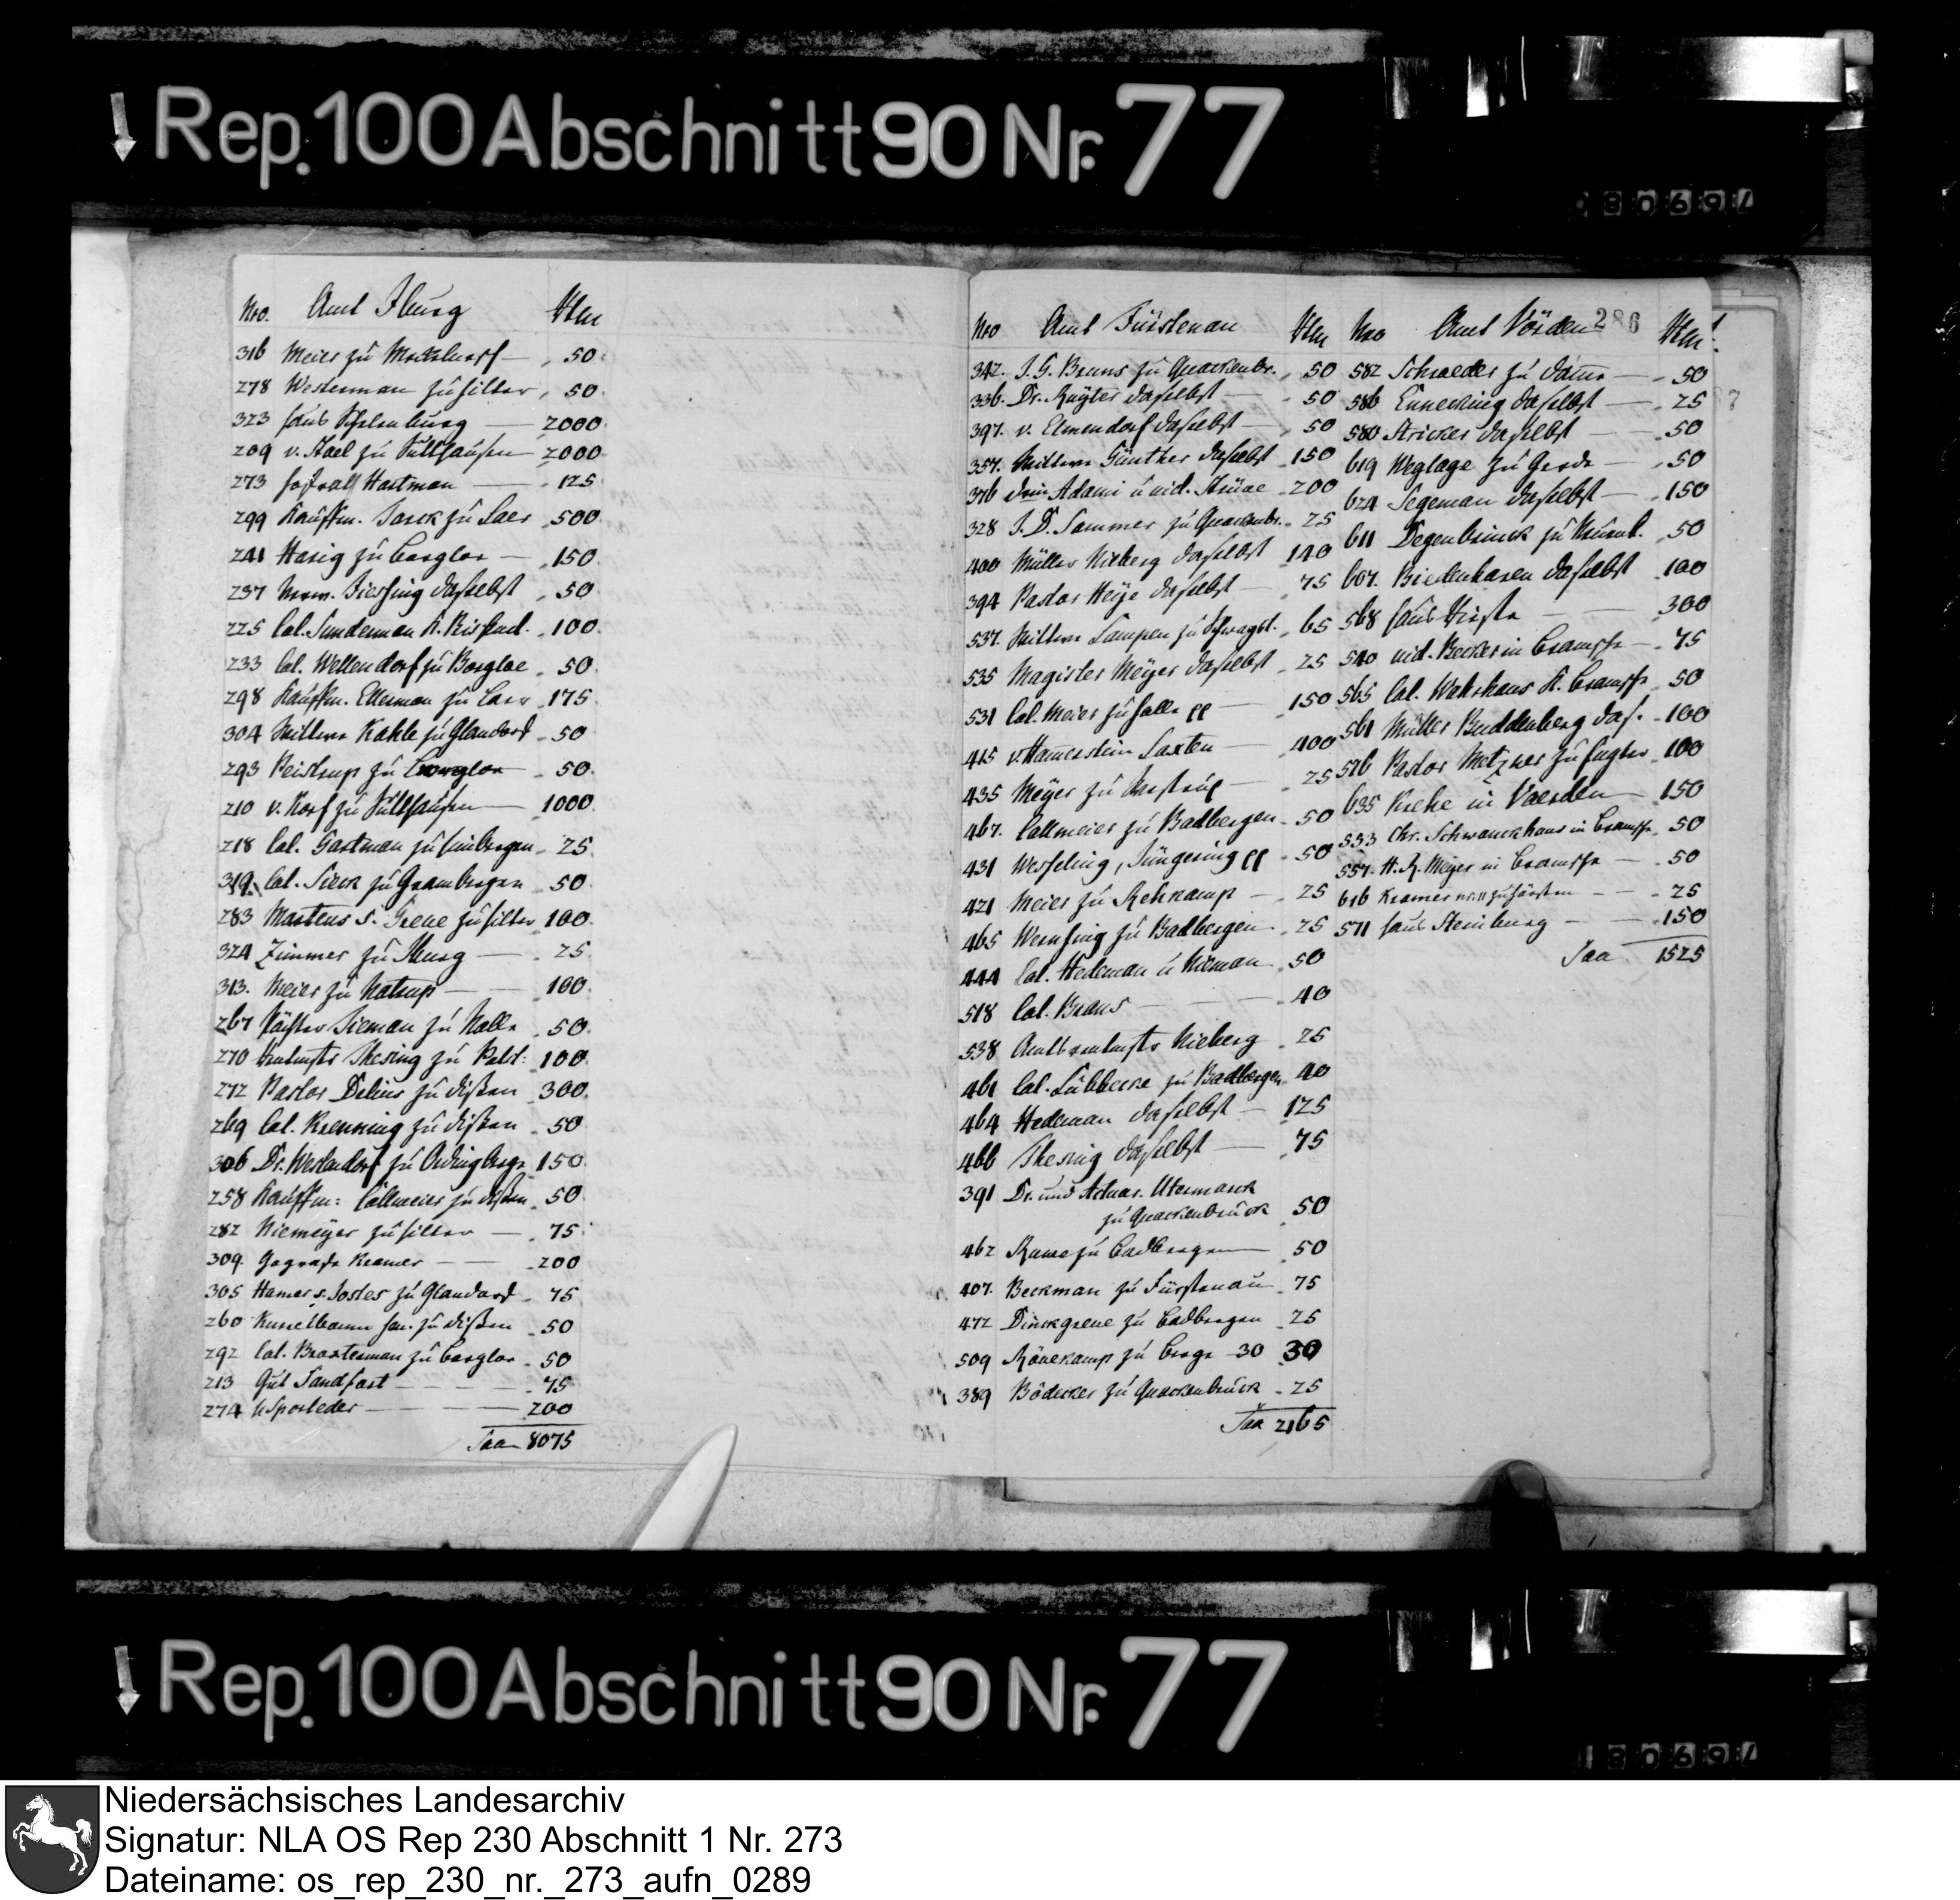 Rep. 100 Abschnitt 90 Nr. 77
Nro. Amt Iburg Rtlr
316 Meier zu Mecklendorf 50
278 Westerman zu Hilter 50
323 Haus Schelenburg 2000
209 v. Stael zu Sutthausen 2000
273 Hofrath Hartman 125
299 Kauffm. Jorck zu Laer 500
241 Harig zu Borgloe 150
237 Nross daselbst 50
225 Col. Sundeman K. 100
233 Col. Wellendorf zu Borgloe 50
298 Kauffm. Ellerman zu Laer 175
304 Wittwe Kahle zu Glandorf 50
293 Beistrup zu Borgloe 50
210 v. Korf zu Sutthausen 1000
218 Col. Gartman zu 25
319. Col. Sieck zu Grambergen 50
283 Martens s. Greve zu Hilter 100
324 Zimmer zu Iburg 25
313. Meier zu Natrup 100
267 Pächter Sieman zu Nolle 50
270 Thesing zu 100
272 Pastor Delius zu Dißen 300
269 Col. Krenning zu Dißen 50
306 Dr. Westendorf zu 150
258 Kauffm: Collmeier zu Dißen 50
282 Niemeyer zu Hilter 75
309. Gografe Kramer 200
305 Hamer s. Jostes zu Glandorf 75
260 sen. zu Dißen 50
292 Col. Braxterman zu Borgloe 50
213 Gut Sandfort 75
274 Sporleder 200
Saa 8075
Nro Amt Fürstenau Rtlr
342. J. G. Bruns zu Quackenbr. 50
336. Dr. Rüyter daselbst 50
397. v. Elmendorf daselbst 50
357. Wittwe Günther daselbst 150
376 Adami u vid. Strüve 200
328 J. D. Sommer zu Quackenbr. 25
400 Müller Nieberg daselbst 140
394 Pastor Heye daselbst 75
537. Wittwe Lampen zu Schwagst. 65
535 Magister Meyer daselbst 25
531 Col. Meier zu Halle pp 150
415 v. Hamerstein Loxten 400
435 Meyer zu 25
467. Collmeier zu Badbergen 50
431 Wesseling, Jüngering pp 50
421 Meier zu Rehkamp 25
465 Wernsing zu Badbergen 25
444 Col. Hedeman u Nieman 50
518 Col. Brans 40
538 Amtsrentmstr Nieberg 25
461 Col. Lübbecke zu Badbergen 40
464 Hedeman daselbst 125
466 Thesing daselbst 75
391 Dr. und Actuar. Utermarck
zu Quackenbrück 50
462 zu Badbergen 50
407. Beckman zu Fürstenau 75
472 Dinckgreve zu Badbergen 25
509 Rönekamp zu Berge 30 30
389 Bödecker zu Quackenbrück 25
Saa 2165
Nro Amt Vörden 286 Rtlr
582 Schroeder zu Damme 50
586 Enneking daselbst 25
580 Stricker daselbst 50
619 Weglage zu Gerde 50
624 Segeman daselbst 150
611 Degenbrinck zu Neuenk. 50
607. Biedenharen daselbst 100
568 Haus 300
540 vid. Becker in Bramsche 75
565 Col. Wahrhaus K. Bramsche 50
561 Müller Buddenberg das. 100
576 Pastor Metzner zu Engter 100
635 Krehe in Voerden 150
553 Chr. Schwanckhaus in Bramsche 50
557. H. R. Meyer in Bramsche 50
616 Kramer 25
571 Haus Steinburg 150
Saa 1525
Rep. 100 Abschnitt 90 Nr. 77
Niedersächsisches Landesarchiv
Signatur: NLA OS Rep 230 Abschnitt 1 Nr. 273
Dateiname: os_rep_230_nr._273_aufn_0289